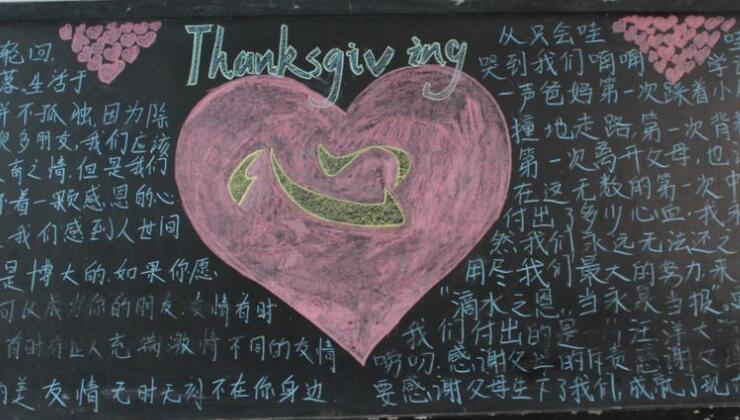 Thanksgiving
心
轮回.
落。生活于
并不孤独,因为除
很多朋友,我们应该
育之情,但是我们
着一颗感恩的心
我们感到人世间
是博大的.如果你愿,
可以成为你的朋友.友情有时
有时有让人充满激情 不同的友情
的美 友情 无时无刻 不在你身边
从只会哇
哭到我们啊啊 学
一声爸妈第一次踩着小
撞地走路,第一次背
第一次离开父母,也
在这无数的第一次中
付出了多少心血.我
然我们永远无法还之
用尽我们最大的努力来
"滴水之恩,当永泉当报"
我们付出的是 汪洋大
唠叨.感谢父 的斥责感谢父
要感谢父母生下了我们,成就了现在